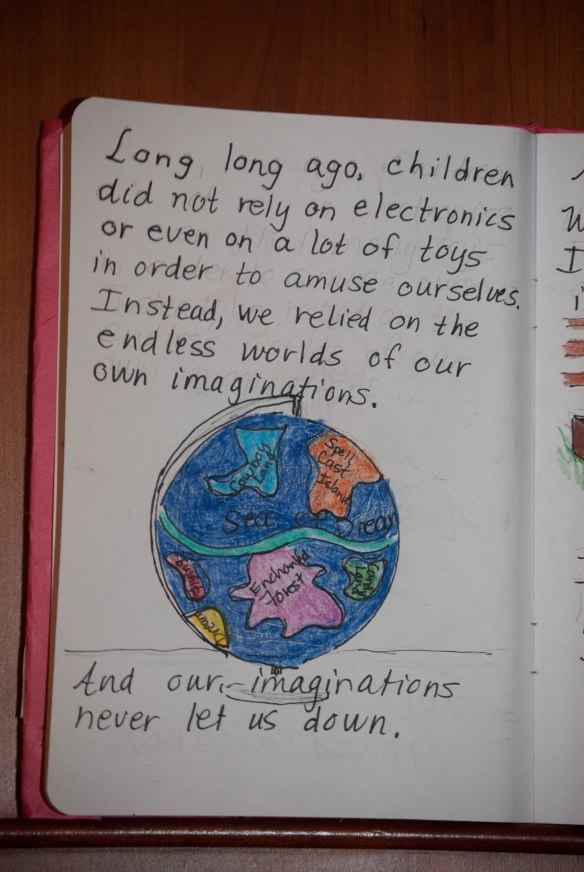 Long, long ago, children
did not rely on electronics
or even on a lot of toys
in order to amuse ourselves.
Instead, we relied on the
endless worlds of our
own imaginations.
Cowboy
Land
Spell
Cast
Island
Sea of Dream
Enchanted
Forest
Flying
Candy
Land
Dream
And our imaginations
never let us down.
W
I